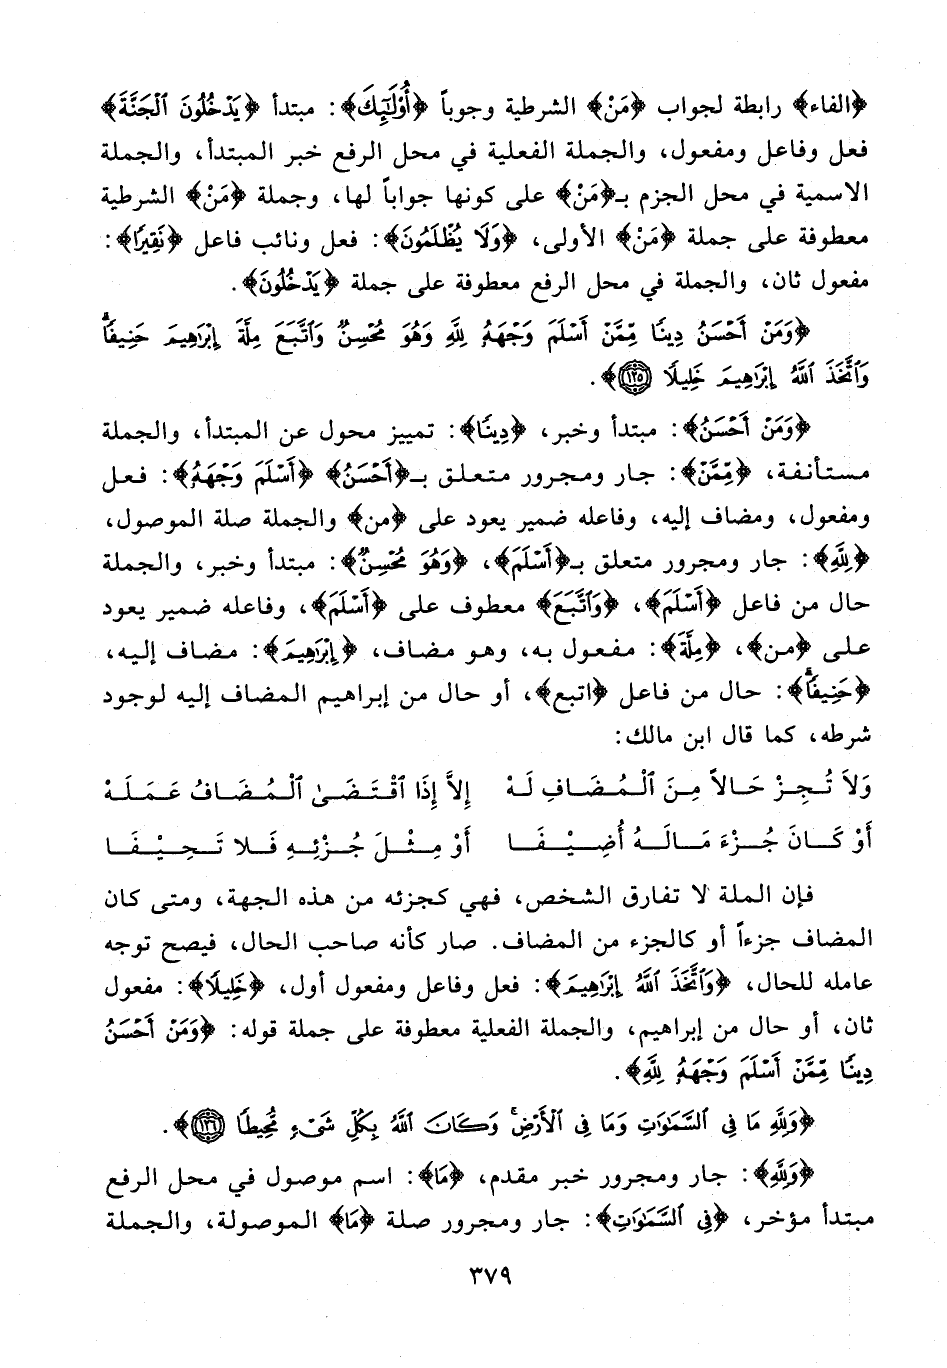 ﴿الفاء﴾ رابطة لجواب ﴿مَنْ﴾ الشرطية وجوباً ﴿أُوْلَٰٓئِكَ﴾: مبتدأ ﴿يَدْخُلُونَ ٱلْجَنَّةَ﴾
فعل وفاعل ومفعول، والجملة الفعلية في محل الرفع خبر المبتدأ، والجملة
الاسمية في محل الجزم بـ﴿مَنْ﴾ على كونها جواباً لها، وجملة ﴿مَنْ﴾ الشرطية
معطوفة على جملة ﴿مَنْ﴾ الأولى، ﴿وَلَا يُظْلَمُونَ﴾: فعل ونائب فاعل ﴿نَقِيرًا﴾:
مفعول ثان، والجملة في محل الرفع معطوفة على جملة ﴿يَدْخُلُونَ﴾.
﴿وَمَنْ أَحْسَنُ دِينًا مِّمَّنْ أَسْلَمَ وَجْهَهُۥ لِلَّهِ وَهُوَ مُحْسِنٌ وَٱتَّبَعَ مِلَّةَ إِبْرَٰهِيمَ حَنِيفًاۗ
وَٱتَّخَذَ ٱللَّهُ إِبْرَٰهِيمَ خَلِيلًا ١٢٥﴾.
﴿وَمَنْ أَحْسَنُ﴾: مبتدأ وخبر، ﴿دِينًا﴾: تمييز محول عن المبتدأ، والجملة
مستأنفة، ﴿مِّمَّنْ﴾: جار ومجرور متعلق بـ﴿أَحْسَنُ﴾ ﴿أَسْلَمَ وَجْهَهُۥ﴾: فعل
ومفعول، ومضاف إليه، وفاعله ضمير يعود على ﴿من﴾ والجملة صلة الموصول،
﴿لِلَّهِ﴾: جار ومجرور متعلق بـ﴿أَسْلَمَ﴾، ﴿وَهُوَ مُحْسِنٌ﴾: مبتدأ وخبر، والجملة
حال من فاعل ﴿أَسْلَمَ﴾، ﴿وَٱتَّبَعَ﴾ معطوف على ﴿أَسْلَمَ﴾، وفاعله ضمير يعود
على ﴿من﴾، ﴿مِلَّةَ﴾: مفعول به، وهو مضاف، ﴿إِبْرَٰهِيمَ﴾: مضاف إليه،
﴿حَنِيفًاۗ﴾: حال من فاعل ﴿اتبع﴾، أو حال من إبراهيم المضاف إليه لوجود
شرطه، كما قال ابن مالك:
وَلَا تُجِزْ حَالاً مِنَ ٱلْمُضَافِ لَهْ إِلاَّ إِذَا ٱقْتَضَىٰ ٱلْمُضَافُ عَمَلَهْ
أَوْ كَانَ جُزْءَ مَالَهُ أُضِيْفَا أَوْ مِثْلَ جُزْئِهِ فَلا تَحِيْفَا
فإن الملة لا تفارق الشخص، فهي كجزئه من هذه الجهة، ومتى كان
المضاف جزءاً أو كالجزء من المضاف. صار كأنه صاحب الحال، فيصح توجه
عامله للحال، ﴿وَٱتَّخَذَ ٱللَّهُ إِبْرَٰهِيمَ﴾: فعل وفاعل ومفعول أول، ﴿خَلِيلًا﴾: مفعول
ثان، أو حال من إبراهيم، والجملة الفعلية معطوفة على جملة قوله: ﴿وَمَنْ أَحْسَنُ
دِينًا مِّمَّنْ أَسْلَمَ وَجْهَهُۥ لِلَّهِ﴾.
﴿وَلِلَّهِ مَا فِي ٱلسَّمَٰوَٰتِ وَمَا فِي ٱلْأَرْضِۚ وَكَانَ ٱللَّهُ بِكُلِّ شَيْءٍ مُّحِيطًا ١٢٦﴾.
﴿وَلِلَّهِ﴾: جار ومجرور خبر مقدم، ﴿مَا﴾: اسم موصول في محل الرفع
مبتدأ مؤخر، ﴿فِي ٱلسَّمَٰوَٰتِ﴾: جار ومجرور صلة ﴿مَا﴾ الموصولة، والجملة
٣٧٩